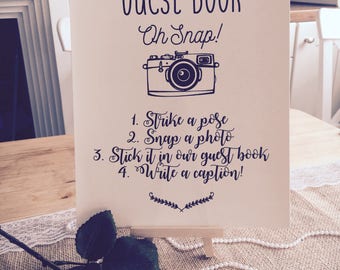 Guest Book
Oh Snap!
1. Strike a pose
2. Snap a photo
3. Stick it in our guest book
4. Write a caption!